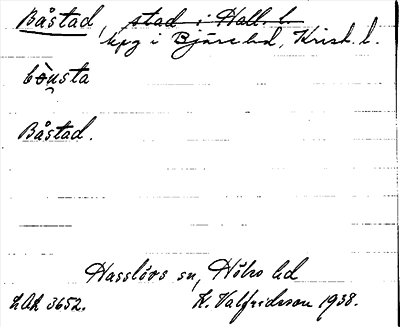 Båstad, stad i Hall. l.
kpg i Bjäre hd, Krist. l.
bòu̯sta
Båstad.
Hasslövs sn, Höks hd
LAL 3652. K. Valfridsson 1938.